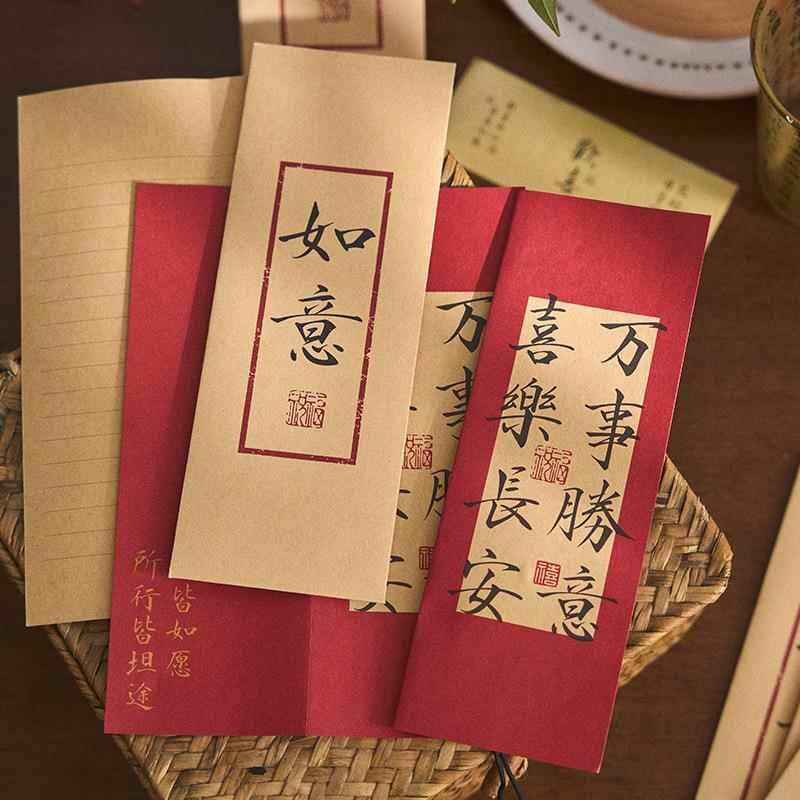 如意
万事勝意
喜樂長安
禧
万事
皆如愿
所行皆坦途